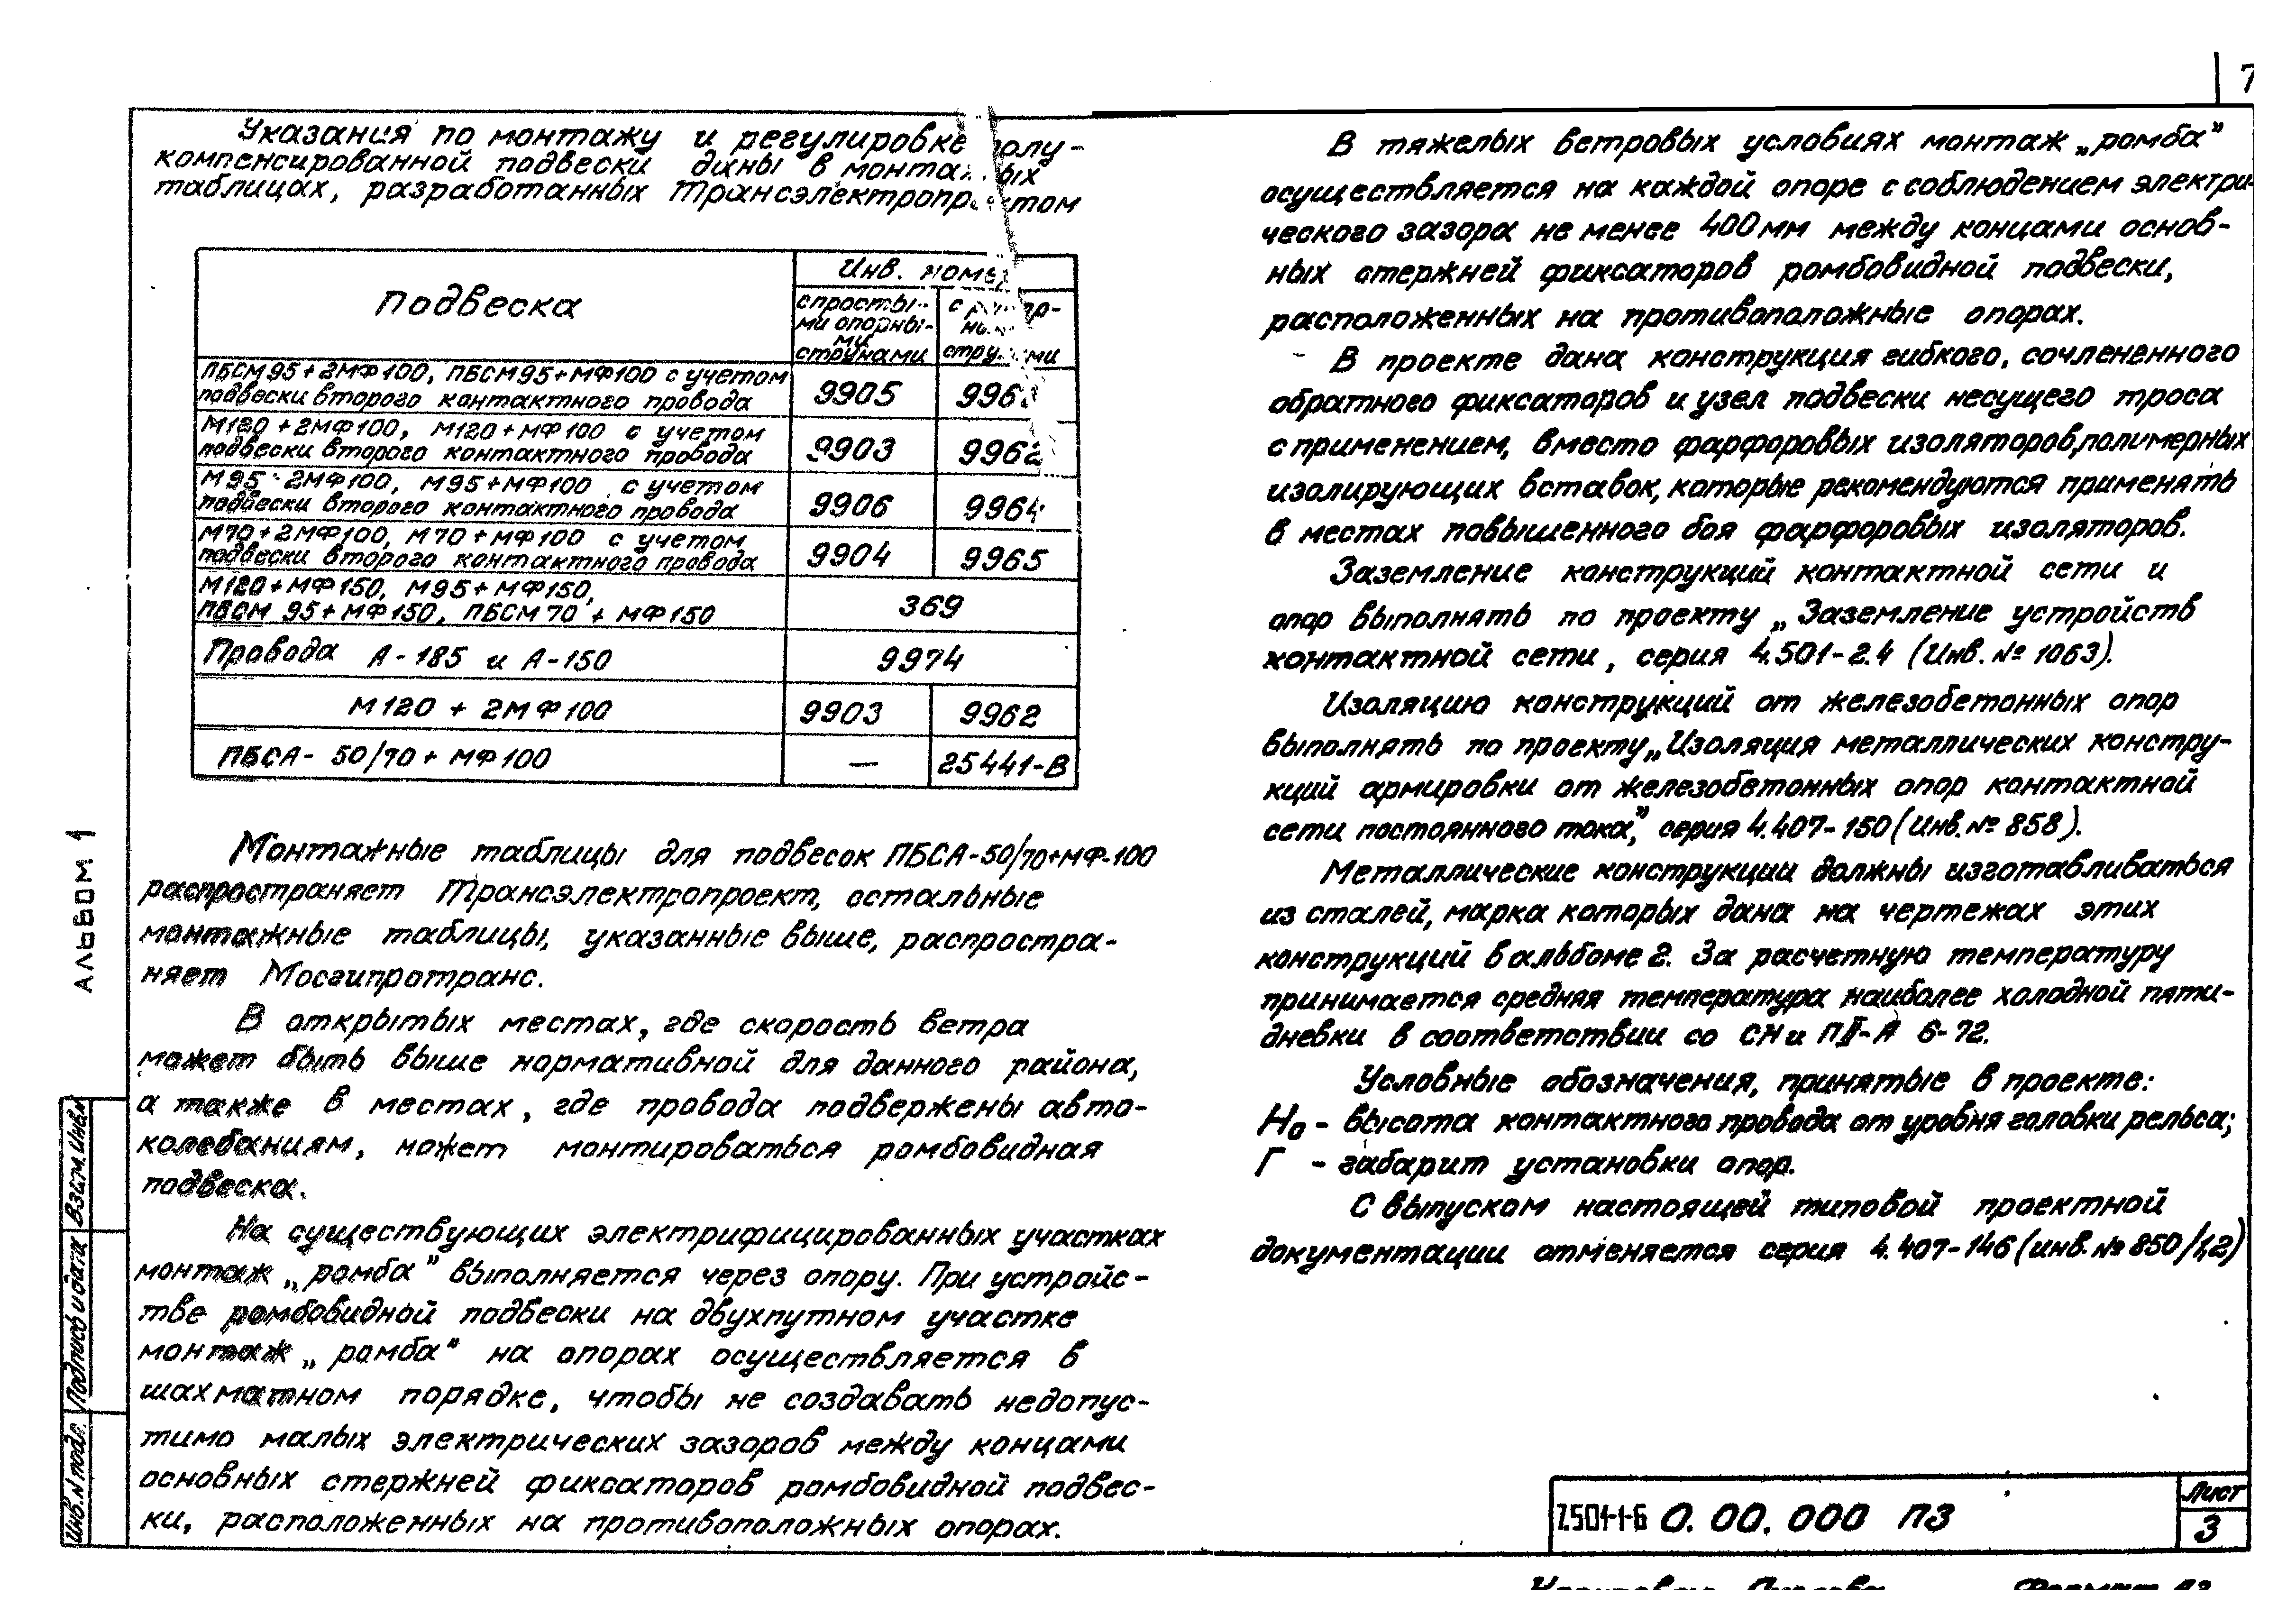 7
Указания по монтажу и регулировке полу-
компенсированной подвески даны в монтажных
таблицах, разработанных Трансэлектропроектом
Подвеска
Инв. номер
с просты-
ми опорны-
ми
струнами
с
струнами
ПБСМ95+2МФ100, ПБСМ95+МФ100 с учетом
подвески второго контактного провода
9905
9963
М120+2МФ100, М120+МФ100 с учетом
подвески второго контактного провода
9903
9962
М95+2МФ100, М95+МФ100 с учетом
подвески второго контактного провода
9906
9964
М70+2МФ100, М70+МФ100 с учетом
подвески второго контактного провода
9904
9965
М120+МФ150, М95+МФ150,
ПБСМ 95+МФ150, ПБСМ70+МФ150
369
Провода А-185 и А-150
9974
М120 + 2МФ100
9903
9962
ПБСА- 50/70+МФ100
—
25441-В
Монтажные таблицы для подвесок ПБСА-50/70+МФ-100
распространяет Трансэлектропроект, остальные
монтажные таблицы, указанные выше, распростра-
няет Мосгипротранс.
В открытых местах, где скорость ветра
может быть выше нормативной для данного района,
а также в местах, где провода подвержены авто-
колебаниям, может монтироваться ромбовидная
подвеска.
На существующих электрифицированных участках
монтаж „ромба" выполняется через опору. При устройс-
тве ромбовидной подвески на двухпутном участке
монтаж „ромба" на опорах осуществляется в
шахматном порядке, чтобы не создавать недопус-
тимо малых электрических зазоров между концами
основных стержней фиксаторов ромбовидной подвес-
ки, расположенных на противоположных опорах.
В тяжелых ветровых условиях монтаж „ромба"
осуществляется на каждой опоре с соблюдением электри-
ческого зазора не менее 400мм между концами основ-
ных стержней фиксаторов ромбовидной подвески,
расположенных на противоположные опорах.
В проекте дана конструкция гибкого, сочлененного
обратного фиксаторов и узел подвески несущего троса
с применением, вместо фарфоровых изоляторов,полимерных
изолирующих вставок, которые рекомендуются применять
в местах повышенного боя фарфоровых изоляторов.
Заземление конструкций контактной сети и
опор выполнять по проекту „Заземление устройств
контактной сети, серия 4.501-2.4 (Инв. № 1063).
Изоляцию конструкций от железобетонных опор
выполнять по проекту „Изоляция металлических констру-
кций армировки от железобетонных опор контактной
сети постоянного тока", серия 4.407-150 (Инв. № 858).
Металлические конструкции должны изготавливаться
из сталей, марка которых дана на чертежах этих
конструкций в альбоме 2. За расчетную температуру
принимается средняя температура наиболее холодной пяти-
дневки в соответствии со СНиПII-А 6-72.
Условные обозначения, принятые в проекте:
Но - высота контактного провода от уровня головки рельса;
Г - габарит установки опор.
С выпуском настоящей типовой проектной
документации отменяется серия 4.407-146 (инв. № 850/1,2)
АЛЬБОМ 1
Взам. Инв.№
Подпись и дата
Инв. № подл.
7.501-1-6 0. 00. 000 ПЗ
Лист
3
Формат А3